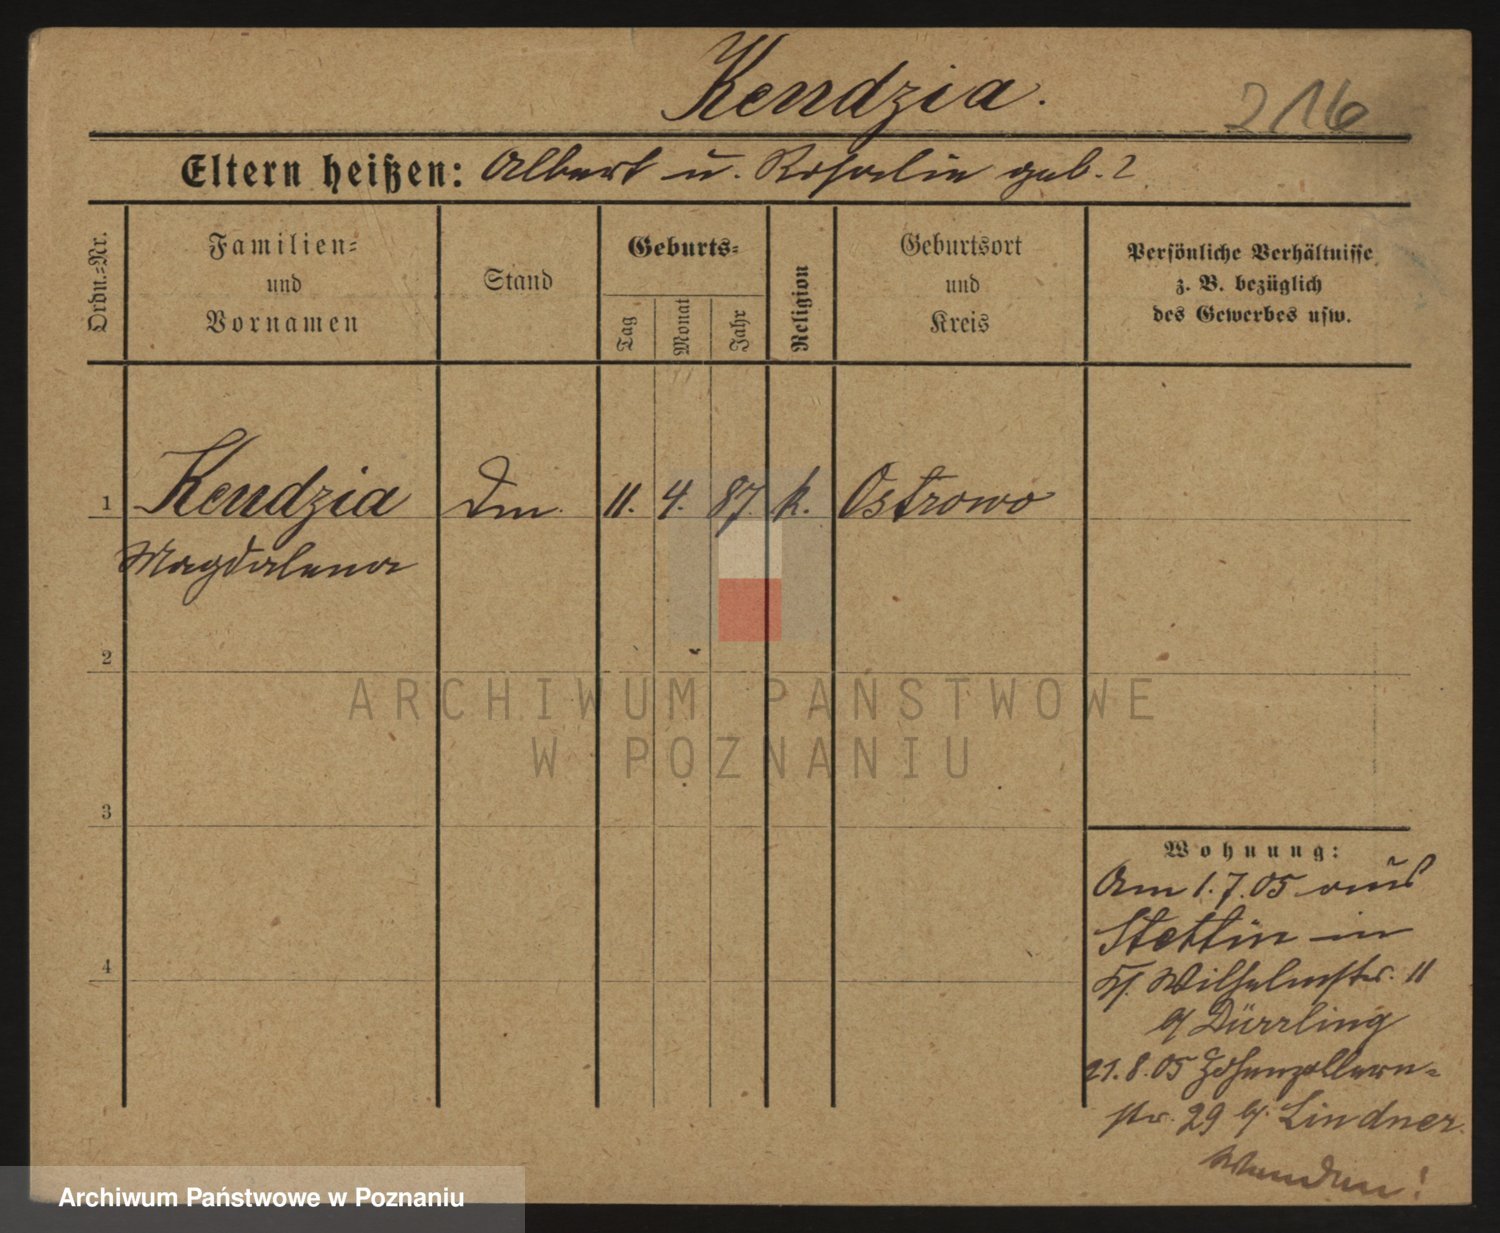 Kendzia.
216
Eltern heißen: Albert u. Rosalie geb. ?
Ordn.=Nr.
Familien=
und
Vornamen
Stand
Geburts=
Tag
Monat
Jahr
Religion
Geburtsort
und
Kreis
Persönliche Verhältnisse
z. B. bezüglich
des Gewerbes usw.
1 Kendzia Dm. 11. 4. 87. k. Ostrowo
Magdalena
2
3
4
Wohnung:
Am 1.7.05 aus
Stettin in
Wilhelmstr. 11
b/ Dürrling
21.8.05 Hohenzollern=
str. 29 b/. Lindner.
Wenden!
ARCHIWUM PAŃSTWOWE
W POZNANIU
Archiwum Państwowe w Poznaniu